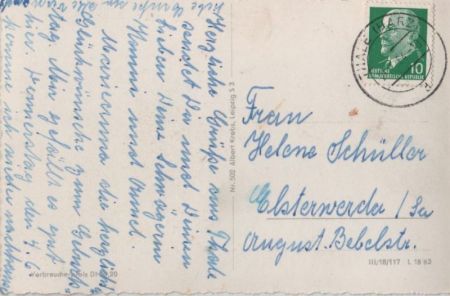 Herzliche Grüße aus Thale
sendet Dir und Deinen
Lieben Deine Schwägerin
Hanni und
Marianna die herzlichsten
Glückwünsche zum Geburts-
tag. Mir gefällt es gut
hier. Donnerstag den 4/6
kommen wir wieder nach Haus
THALE (HARZ)
10
DEUTSCHE
DEMOKRATISCHE REPUBLIK
Nr. 502 Albert Krebs, Leipzig S 3
Frau
Helene Schüller
Elsterwerda/Sa
August-Bebelstr.
III/18/117 L 18 63
Verbraucherpreis DM 0,20